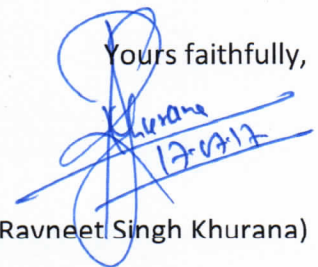 Yours faithfully,
Khurana
17.07.17
Ravneet Singh Khurana)